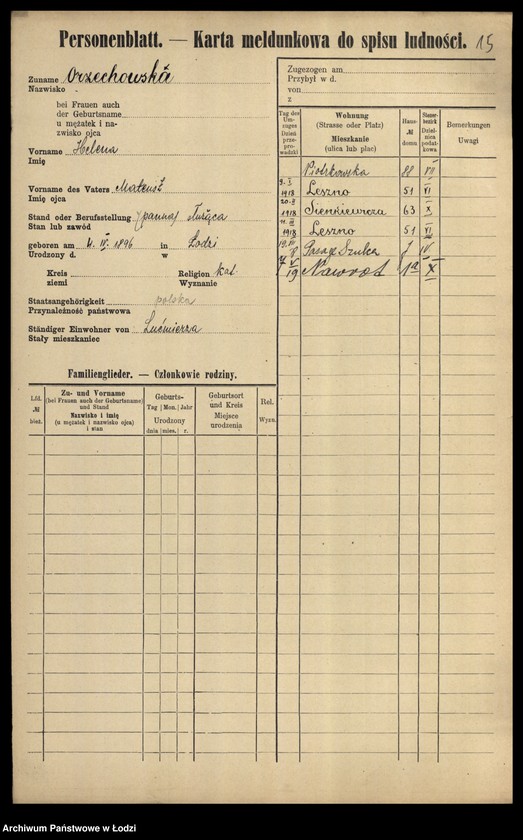 Personenblatt. — Karta meldunkowa do spisu ludności. 15
Zuname Orzechowska
Nazwisko
bei Frauen auch
der Geburtsname
u mężatek i na-
zwisko ojca
Vorname Helena
Imię
Vorname des Vaters Mateusz
Imię ojca
Stand oder Berufsstellung (panna)
Stan lub zawód
geboren am 4. IV. 1896 in Łodzi
Urodzony d. w
Kreis Religion kat.
ziemi Wyznanie
Staatsangehörigkeit polska
Przynależność państwowa
Ständiger Einwohner von Lućmierza
Stały mieszkaniec
Familienglieder. — Członkowie rodziny.
Lfd. № bież.
Zu- und Vorname
(bei Frauen auch der Geburtsname)
und Stand
Nazwisko i imię
(u mężatek i nazwisko ojca)
i stan
Geburts-
Tag Mon. Jahr
Urodzony
dnia mies. r.
Geburtsort
und Kreis
Miejsce
urodzenia
Rel.
Wyzn.
Zugezogen am
Przybył w d.
von
z
Tag des Um-
zuges
Dzień
prze-
prowadzki
Wohnung
(Strasse oder Platz)
Mieszkanie
(ulica lub plac)
Haus-
№
domu
Steuer-
bezirk
Dziel-
nica
podat-
kowa
Bemerkungen
Uwagi
Piotrkowska 88 VII
9. I 1918 Leszno 51 VI
1918 Sienkiewicza 63 X
1918 Leszno 51 VI
Pasaż Szulca 7 IV
19 Nawrot 1a X
Archiwum Państwowe w Łodzi